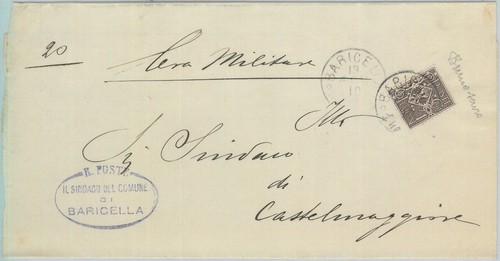 20
Leva Militare
BARICELLA
19
10
BARI
Illo
Sig Sindaco
di
Castelmaggiore
R. POSTE
IL SINDACO DEL COMUNE
DI
BARICELLA